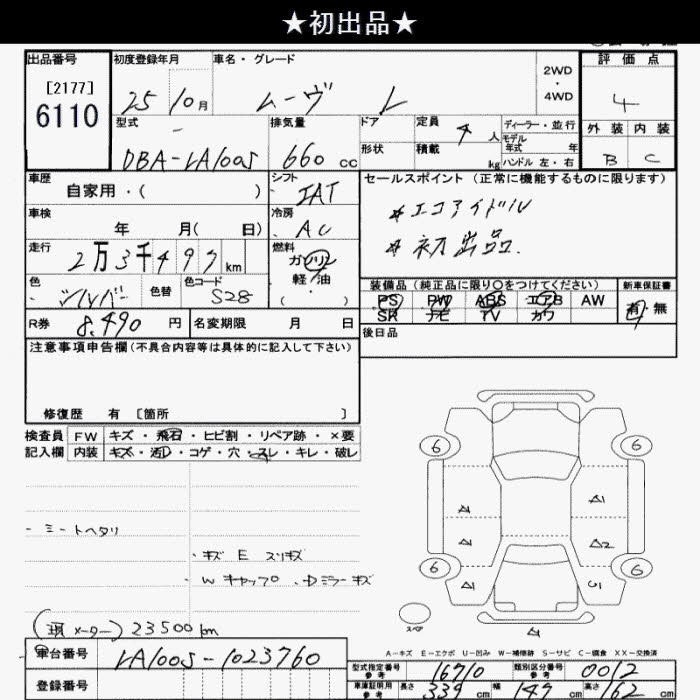 ★初出品★
出品番号
[2177]
6110
初度登録年月
25 10月
車名・グレード
ムーヴ L
2WD
・
4WD
評価点
4
型式
DBA-LA100S
排気量
660 cc
ドア
形状
定員
4 人
積載
kg
ディーラー・並行
モデル
年式 年
ハンドル 左・右
外装 内装
B C
車歴
自家用・( )
シフト
IAT
セールスポイント (正常に機能するものに限ります)
*エコアイドル
*初出品.
車検
年 月( 日)
冷房
AC
走行
2万3千497 km
燃料
ガソリン
軽・油
( ・ )
色
シルバー
色替
色コード
S28
装備品(純正品に限り○をつけてください)
PS PW ABS エアB AW
SR ナビ TV カワ
新車保証書
有 無
R券 8,490 円
名変期限 月 日
後日品
注意事項申告欄(不具合内容等は具体的に記入して下さい)
修復歴 有 [箇所 ]
検査員
記入欄
FW キズ・飛石・ヒビ割・リペア跡・×要
内装 キズ・汚レ・コゲ・穴・スレ・キレ・破レ
- ミートヘタリ
・キズ E スリキズ
・W キャップ 、Dミラーキズ
(現メーター) 23500km
6 6
A1 A1
A1 A2
6 6
A1 U1
スペア
A1
A-キズ E-エクボ U-凹み W-補修跡 S-サビ C-腐食 XX-交換済
車台番号 LA100S-1023760
登録番号
型式指定番号
参考
16710
類別区分番号
参考
0012
車庫証明用
参考
長さ 339 cm 幅 147 cm 高さ 162 cm